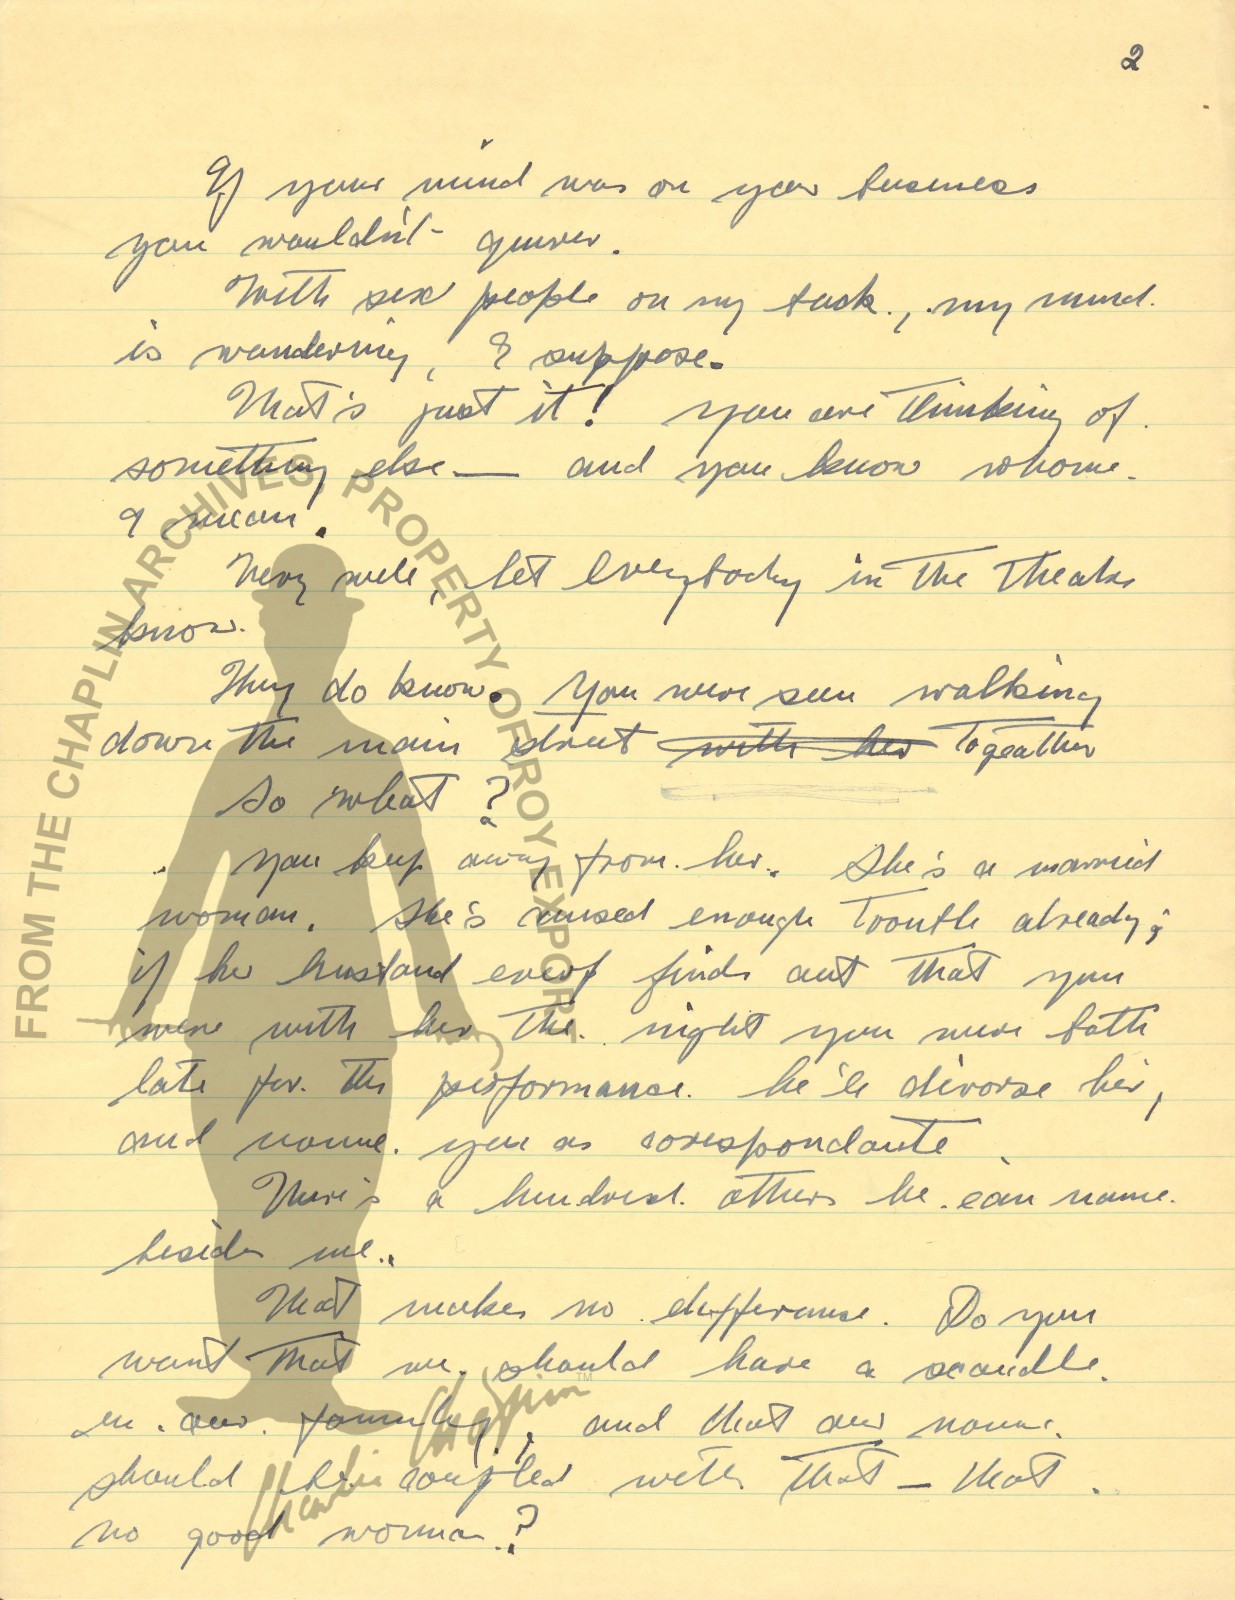 2
If your mind was on your business
you wouldn't quiver.
With six people on my back, my mind
is wandering, I suppose.
That's just it! You are thinking of
something else — and you know whome
I mean.
Very well, let everybody in the theatre
know.
They do know. You were seen walking
down the main street with her togeather
So what?
You keep away from her. She's a married
woman. She's caused enough trouble already;
if her husband ever finds out that you
were with her the night you were both
late for the performance. he'll divorse her,
and name you as corespondante.
There's a hundred others he can name
besides me.
That makes no differance. Do you
want that we should have a scandle
in our family, and that our name
should be coupled with that — that
no good woman?
FROM THE CHAPLIN ARCHIVES, PROPERTY OF ROY EXPORT
Charlie Chaplin™